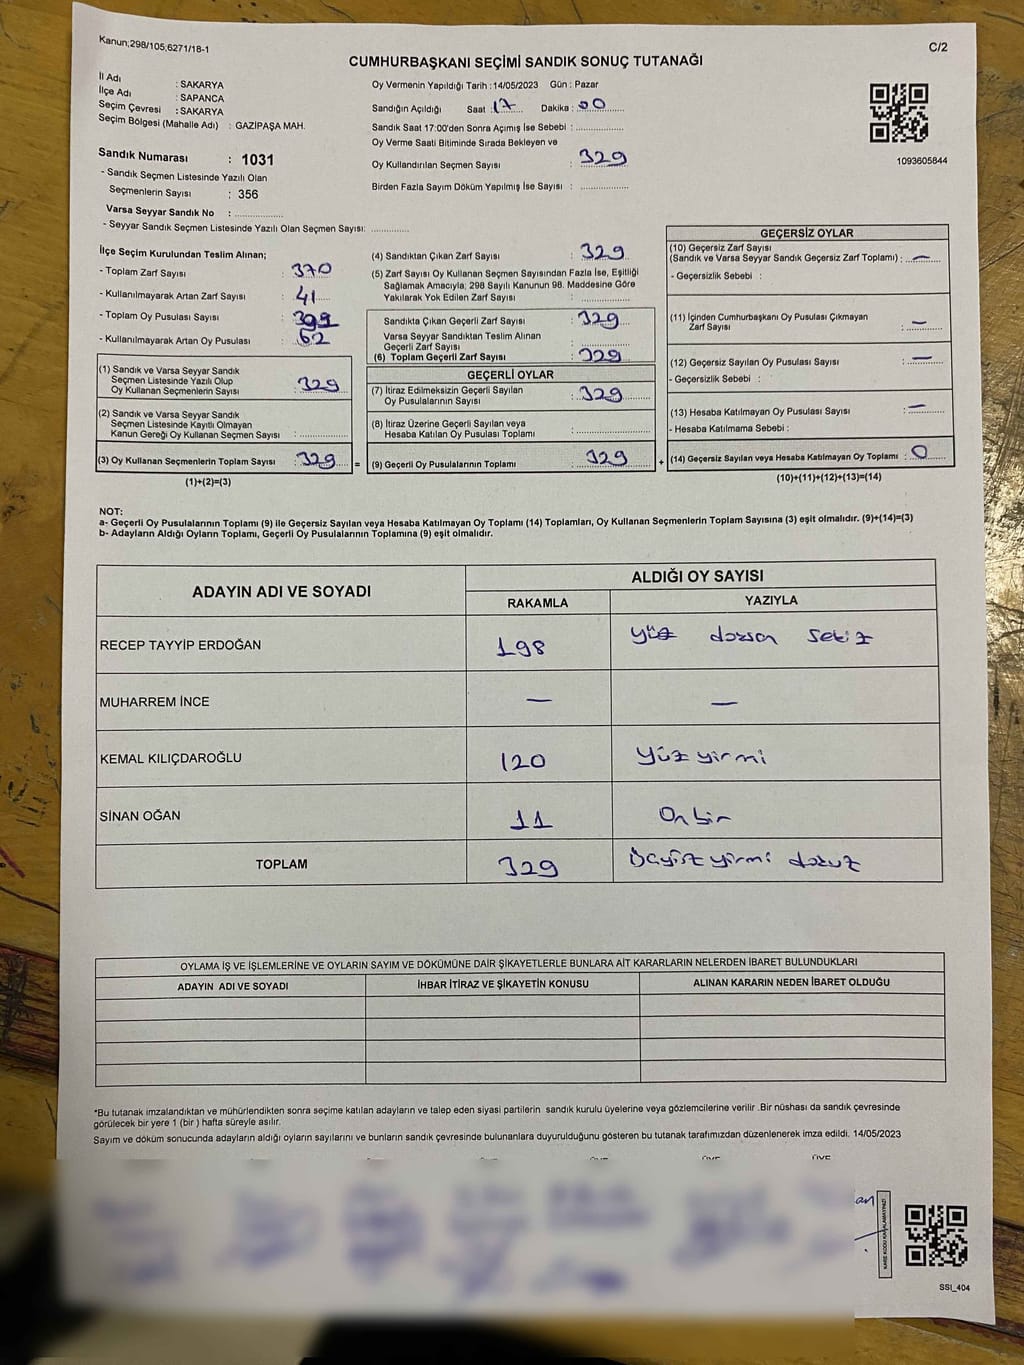 Kanun;298/105;6271/18-1
C/2
CUMHURBAŞKANI SEÇİMİ SANDIK SONUÇ TUTANAĞI
İl Adı : SAKARYA
İlçe Adı : SAPANCA
Seçim Çevresi : SAKARYA
Seçim Bölgesi (Mahalle Adı) : GAZİPAŞA MAH.
Sandık Numarası : 1031
- Sandık Seçmen Listesinde Yazılı Olan
Seçmenlerin Sayısı : 356
Varsa Seyyar Sandık No : ..............
- Seyyar Sandık Seçmen Listesinde Yazılı Olan Seçmen Sayısı: ............
Oy Vermenin Yapıldığı Tarih : 14/05/2023 Gün : Pazar
Sandığın Açıldığı Saat : 17 Dakika : 00
Sandık Saat 17:00'den Sonra Açımış İse Sebebi : ..............
Oy Verme Saati Bitiminde Sırada Bekleyen ve
Oy Kullandırılan Seçmen Sayısı : 329
Birden Fazla Sayım Döküm Yapılmış İse Sayısı : ..............
1093605844
İlçe Seçim Kurulundan Teslim Alınan;
- Toplam Zarf Sayısı : 370
- Kullanılmayarak Artan Zarf Sayısı : 41
- Toplam Oy Pusulası Sayısı :
- Kullanılmayarak Artan Oy Pusulası : 62
(1) Sandık ve Varsa Seyyar Sandık
Seçmen Listesinde Yazılı Olup
Oy Kullanan Seçmenlerin Sayısı : 329
(2) Sandık ve Varsa Seyyar Sandık
Seçmen Listesinde Kayıtlı Olmayan
Kanun Gereği Oy Kullanan Seçmen Sayısı : ..............
(3) Oy Kullanan Seçmenlerin Toplam Sayısı : 329
(1)+(2)=(3)
=
(4) Sandıktan Çıkan Zarf Sayısı : 329
(5) Zarf Sayısı Oy Kullanan Seçmen Sayısından Fazla İse, Eşitliği
Sağlamak Amacıyla; 298 Sayılı Kanunun 98. Maddesine Göre
Yakılarak Yok Edilen Zarf Sayısı : ..............
Sandıkta Çıkan Geçerli Zarf Sayısı : 329
Varsa Seyyar Sandıktan Teslim Alınan
Geçerli Zarf Sayısı : ..............
(6) Toplam Geçerli Zarf Sayısı : 329
GEÇERLİ OYLAR
(7) İtiraz Edilmeksizin Geçerli Sayılan
Oy Pusulalarının Sayısı : 329
(8) İtiraz Üzerine Geçerli Sayılan veya
Hesaba Katılan Oy Pusulası Toplamı : ..............
(9) Geçerli Oy Pusulalarının Toplamı : 329
+
GEÇERSİZ OYLAR
(10) Geçersiz Zarf Sayısı
(Sandık ve Varsa Seyyar Sandık Geçersiz Zarf Toplamı) : —
- Geçersizlik Sebebi :
(11) İçinden Cumhurbaşkanı Oy Pusulası Çıkmayan
Zarf Sayısı : —
(12) Geçersiz Sayılan Oy Pusulası Sayısı : —
- Geçersizlik Sebebi :
(13) Hesaba Katılmayan Oy Pusulası Sayısı : —
- Hesaba Katılmama Sebebi :
(14) Geçersiz Sayılan veya Hesaba Katılmayan Oy Toplamı : 0
(10)+(11)+(12)+(13)=(14)
NOT:
a- Geçerli Oy Pusulalarının Toplamı (9) ile Geçersiz Sayılan veya Hesaba Katılmayan Oy Toplamı (14) Toplamları, Oy Kullanan Seçmenlerin Toplam Sayısına (3) eşit olmalıdır. (9)+(14)=(3)
b- Adayların Aldığı Oyların Toplamı, Geçerli Oy Pusulalarının Toplamına (9) eşit olmalıdır.
ADAYIN ADI VE SOYADI
ALDIĞI OY SAYISI
RAKAMLA YAZIYLA
RECEP TAYYİP ERDOĞAN 198 yüz doksan sekiz
MUHARREM İNCE — —
KEMAL KILIÇDAROĞLU 120 yüz yirmi
SİNAN OĞAN 11 On bir
TOPLAM 329 Üçyüz yirmi dokuz
OYLAMA İŞ VE İŞLEMLERİNE VE OYLARIN SAYIM VE DÖKÜMÜNE DAİR ŞİKAYETLERLE BUNLARA AİT KARARLARIN NELERDEN İBARET BULUNDUKLARI
ADAYIN ADI VE SOYADI İHBAR İTİRAZ VE ŞİKAYETİN KONUSU ALINAN KARARIN NEDEN İBARET OLDUĞU
*Bu tutanak imzalandıktan ve mühürlendikten sonra seçime katılan adayların ve talep eden siyasi partilerin sandık kurulu üyelerine veya gözlemcilerine verilir .Bir nüshası da sandık çevresinde
görülecek bir yere 1 (bir ) hafta süreyle asılır.
Sayım ve döküm sonucunda adayların aldığı oyların sayılarını ve bunların sandık çevresinde bulunanlara duyurulduğunu gösteren bu tutanak tarafımızdan düzenlenerek imza edildi. 14/05/2023
SSI_404